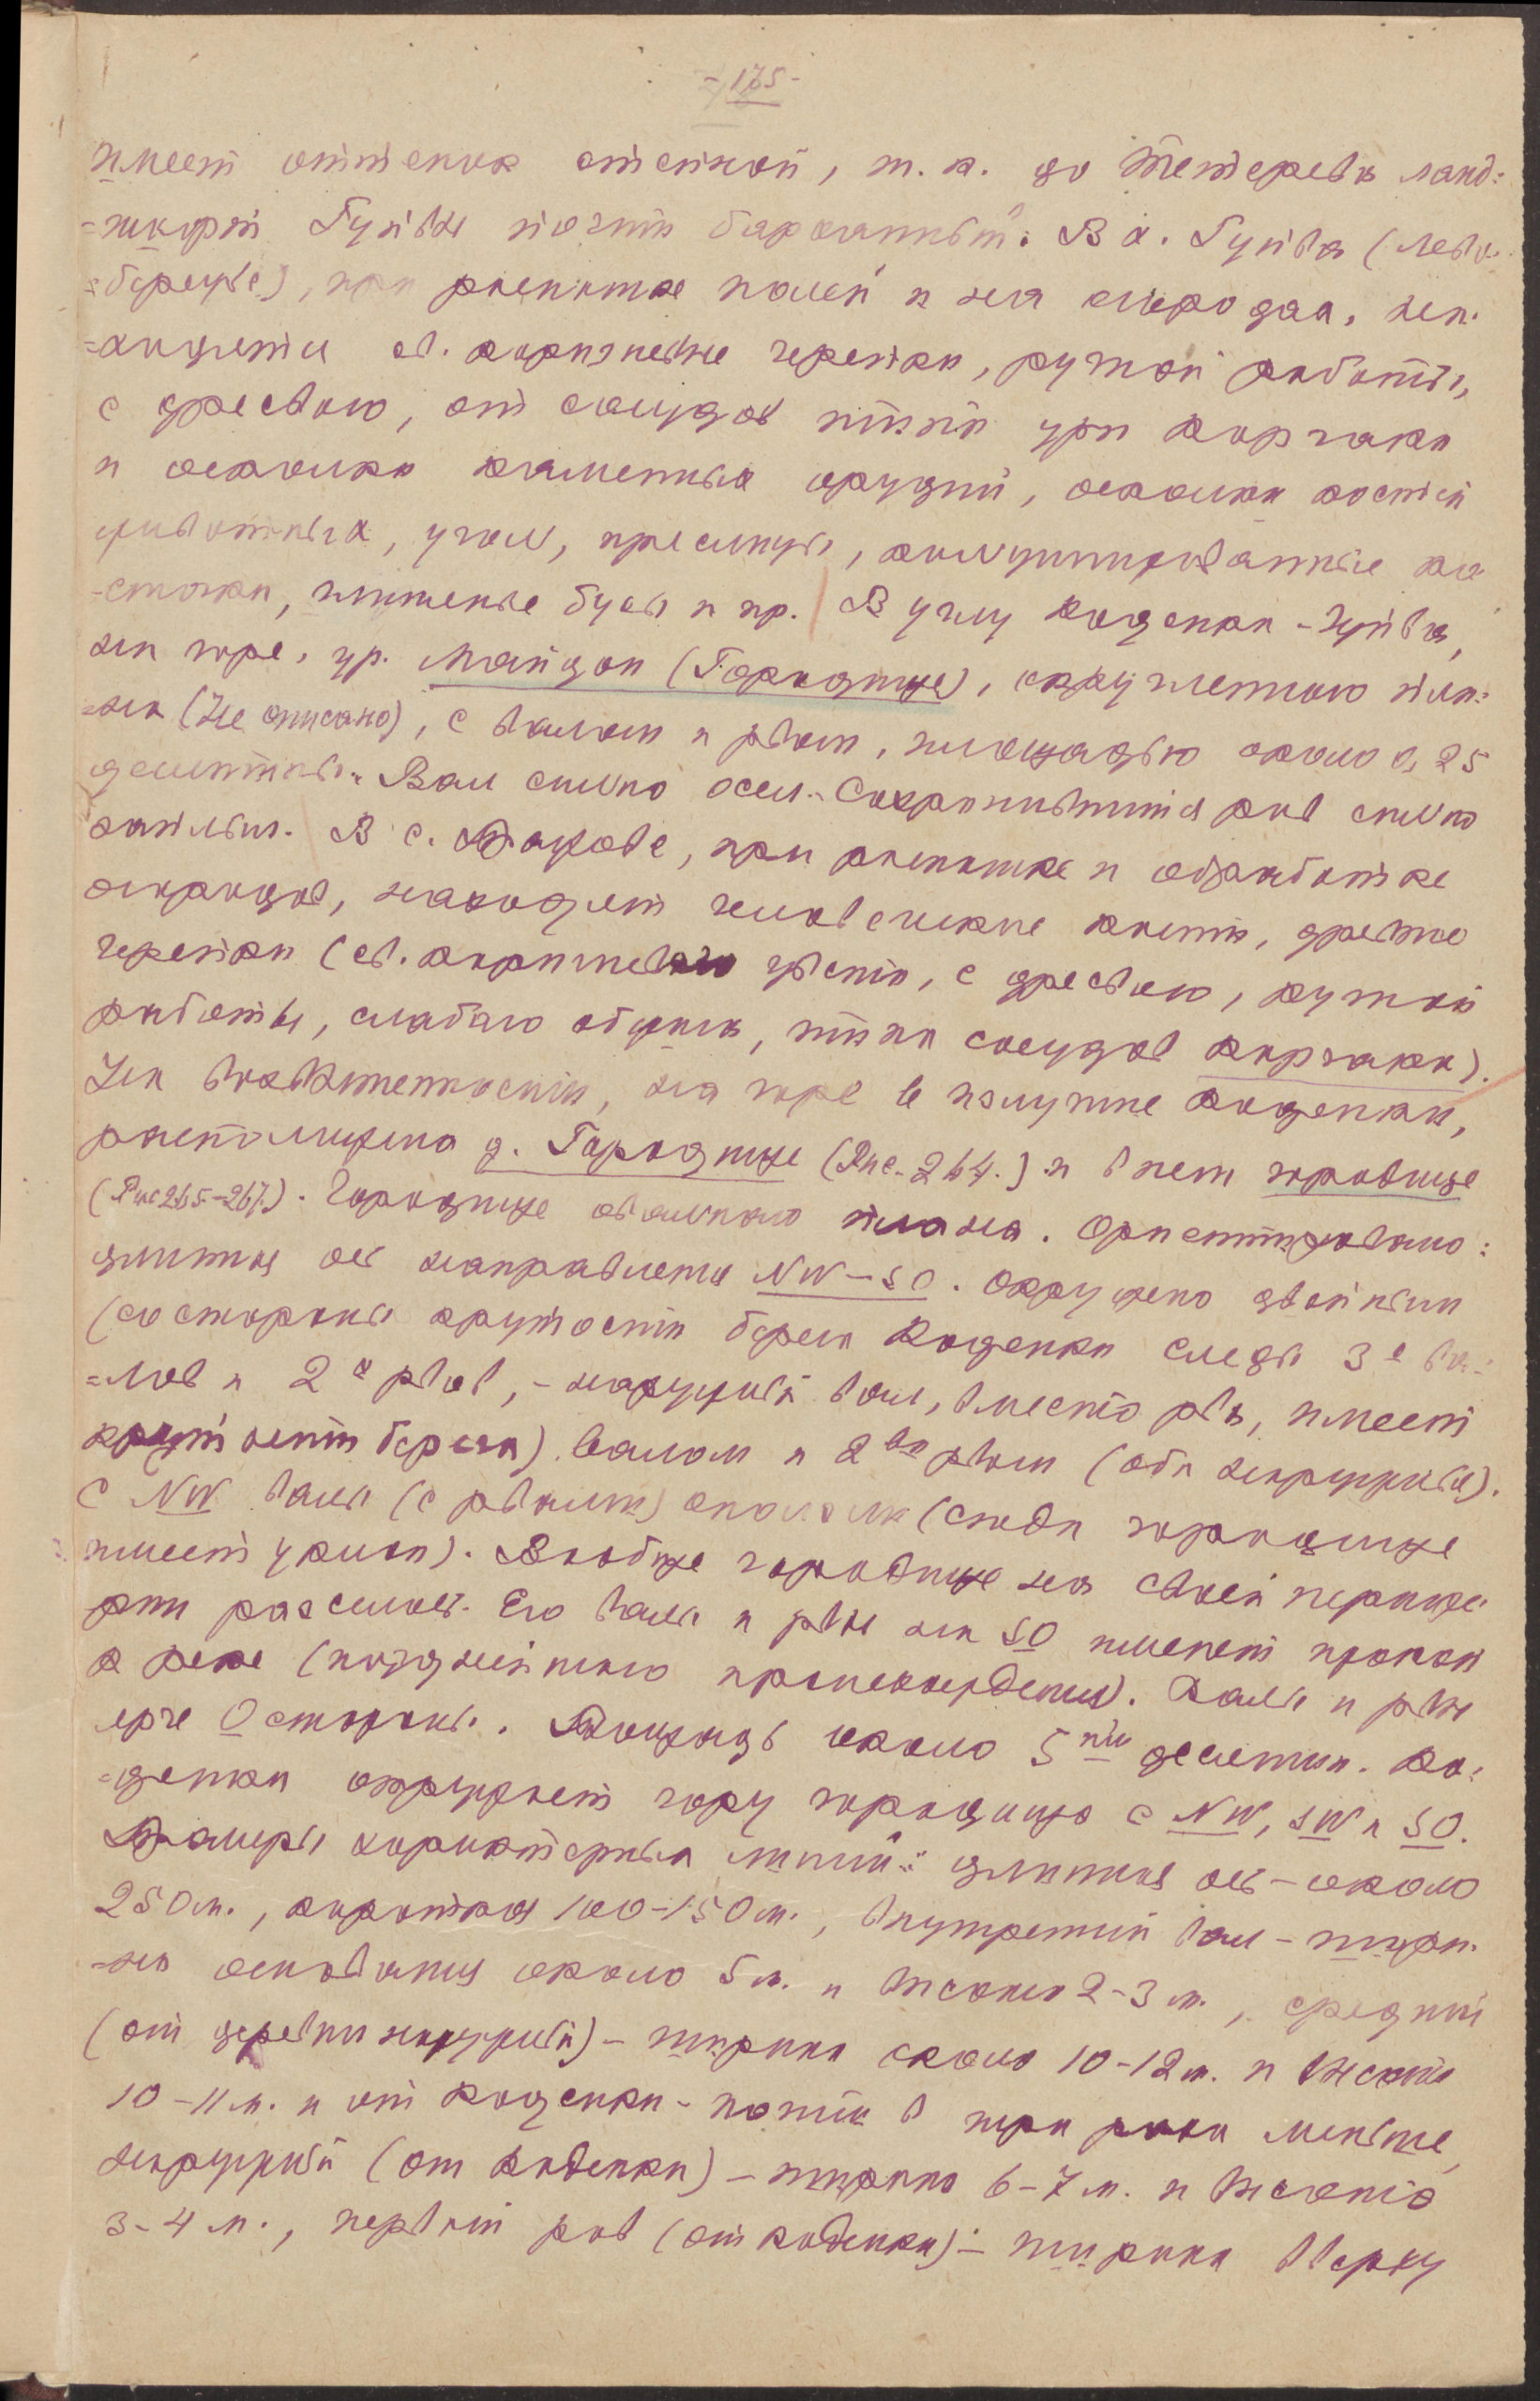 - 175 -
имеет оттенок степной, т.к. до Тетерева ланд=
=шафт Гуйвы почти барханный. В д. Гуйва (лево=
=бережье), при распашке полей и на огородах, на=
=ходят св. коричневые черепки, ручной работы,
с дресвою, от сосудов типа урн корчаки
и осколки каменных орудий, осколки костей
животных, уголь, пряслица, кальцинированные ко=
=сточки, глиняные бусы и пр. В углу Коденки - Гуйва,
на горе, ур. Майдан (Городище), окружённого
(Не описано), с валом и рвом, площадью около 0,25
десятины. Вал сильно осел. Сохранившийся ров сильно
заплыл. В с. , при распашке и обработке
огородов, находят человеческие кости, древние
черепки (св. коричневого цвета, с дресвою, ручной
работы, слабого обжига, типа сосудов корчаки).
На возвышенности, на горе в излучине Коденки,
расположена д. Городище (Рис. 264.) и в нем городище
(Рис 265-267.). Городище овального плана. Ориентировано:
длинная ось направлена NW-SO. Окружено двойным
(со стороны крутости берега Коденки следы 3х ва=
=лов и 2х рвов, - наружный вал, вместо рва, имеет
крутость берега) валом и 2мя рвами (оба наружные).
С NW валы (с рвами) (сюда городище
имеет уклон). Вообще городище на своей перифе=
рии . Его валы и рвы на SO имеют прокоп
к реке (позднейшего происхождения). Валы и рвы
ярче O стороны. Площадь около 5ти десятин. Ко=
=денка окружает гору городища с NW, SW и SO.
Размеры характерных линий: длинная ось - около
250 м., короткая 100-150 м., внутренний вал - шири=
=на основания около 5 м. и высота 2-3 м., средний
(от деревни наружный) - ширина около 10-12 м. и высота
10-11 м. и от Коденки - почти в три раза меньше,
наружный (от Коденки) - ширина 6-7 м. и высота
3-4 м., первый ров (от Коденки) - ширина вверху